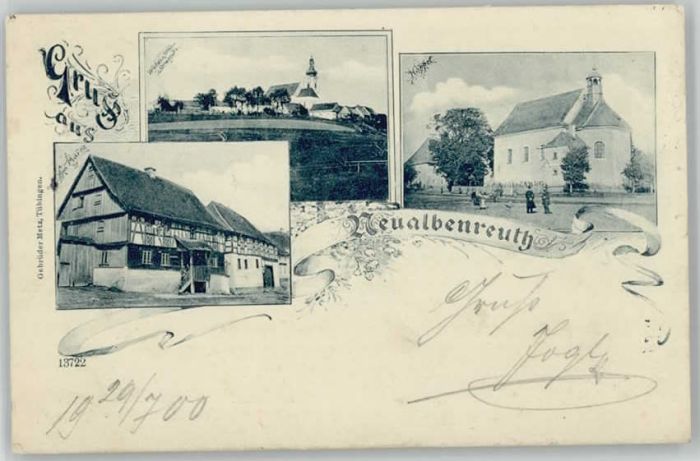 Gruss
aus
Neualbenreuth
Gebrüder Metz, Tübingen.
13722
Gruß
Jogl
19 29/7 00